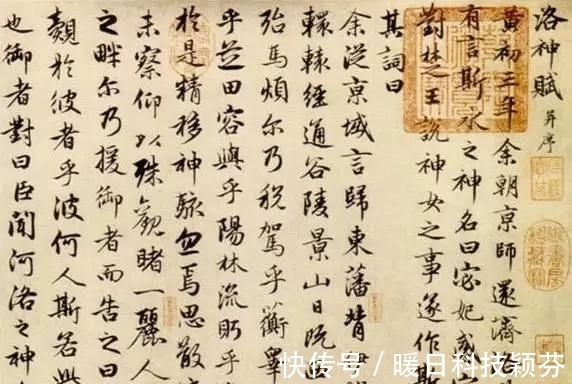 洛神賦 并序
黃初三年余朝京師還濟
有言斯水之神名曰宓妃感
對楚王說神女之事遂作斯
其詞曰
余從京域言歸東藩背
轘轅經通谷陵景山日既
殆馬煩尓乃稅駕乎蘅皋
乎芝田容與乎陽林流眄乎
於是精移神駭忽焉思散
未察仰以殊觀睹一麗人
之畔尓乃援御者而告之曰
覿於彼者乎彼何人斯若此
也御者對曰臣聞河洛之神
快传号 / 暖日科技颖芬